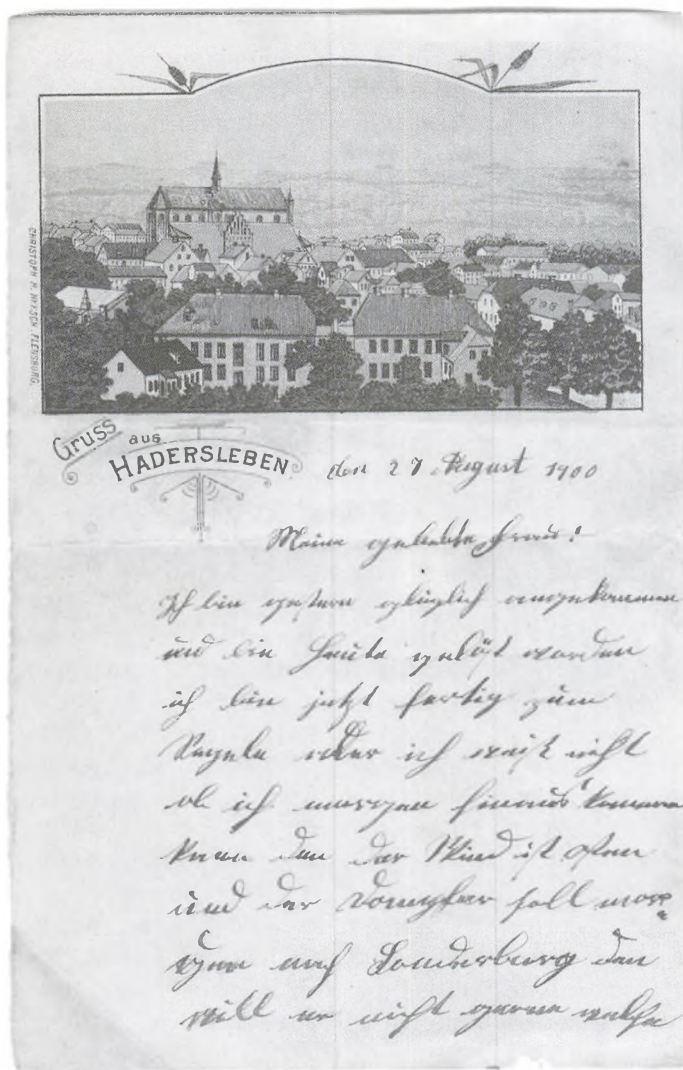 CHRISTOPH H. NIELSEN, FLENSBURG.
Gruss aus
HADERSLEBEN
den 27 August 1900
Meine geliebte Frau!
Ich bin gestern glüglich angekommen
und bin Heute gelöst worden
ich bin jetzt fertig zum
Segeln aber ich weiß nicht
ob ich morgen hinaus kommen
kann den der Wind ist osten
und der Dampfer soll mor=
gen nach Sonderburg den
will er nicht gerne welche